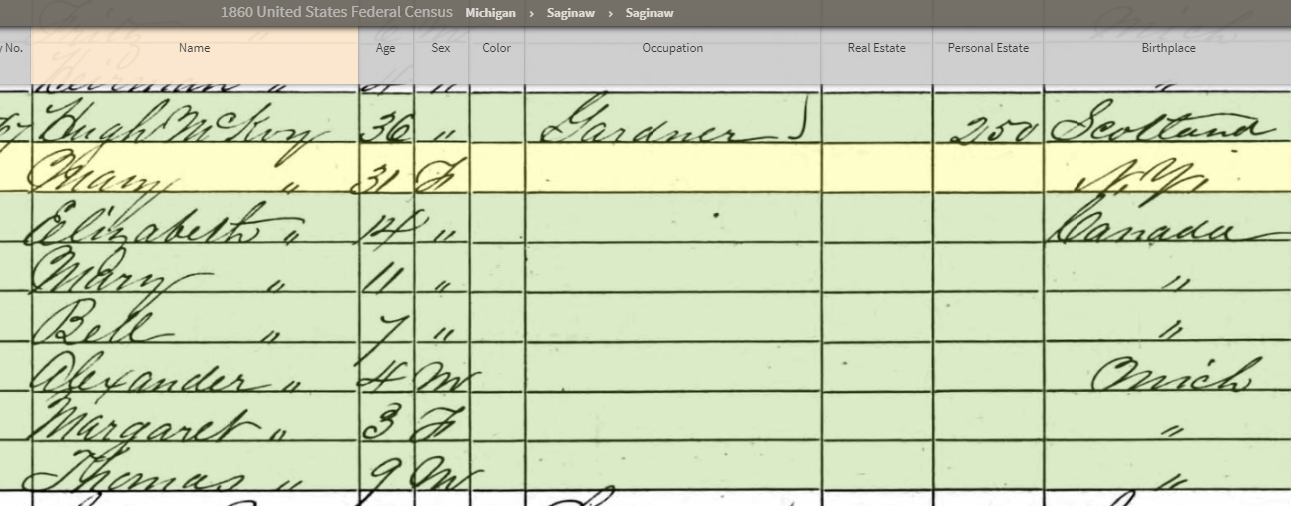 1860 United States Federal Census Michigan › Saginaw › Saginaw
y No. Name Age Sex Color Occupation Real Estate Personal Estate Birthplace
Mich
" "
67 Hugh McKoy 36 " Gardner 250 Scotland
Mary " 31 F N.Y.
Elizabeth " 14 " Canada
Mary " 11 " "
Bell " 7 " "
Alexander " 4 M Mich
Margaret " 3 F "
Thomas " 9 M "